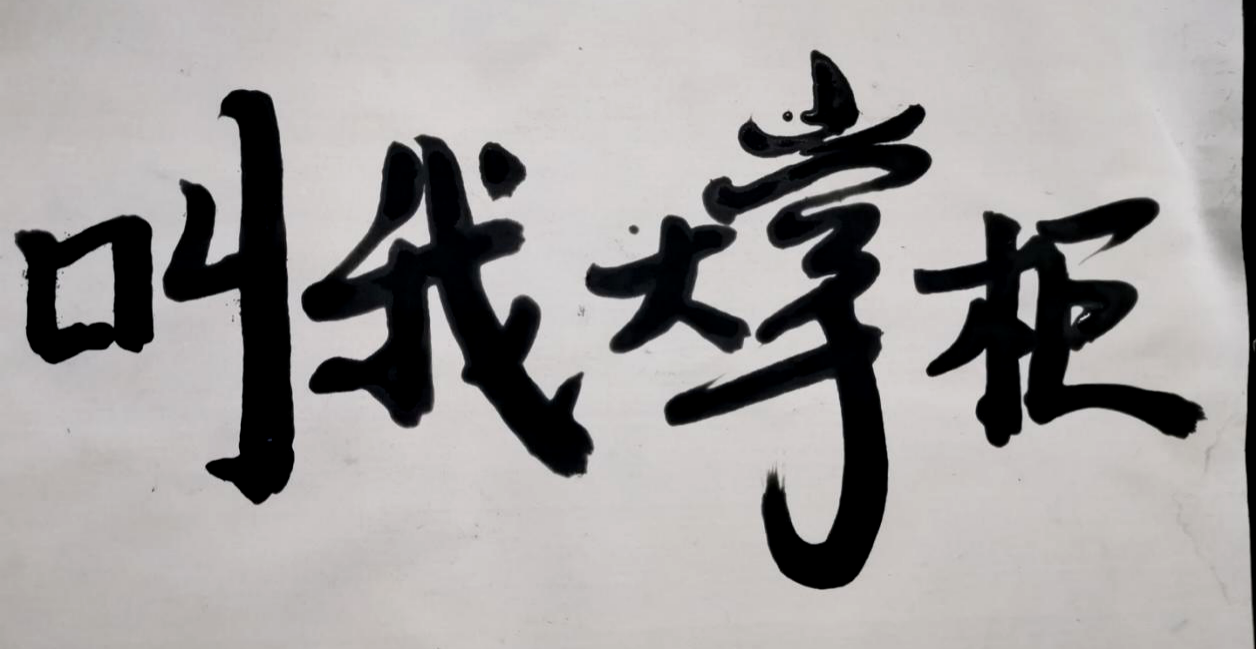 叫我大掌柜